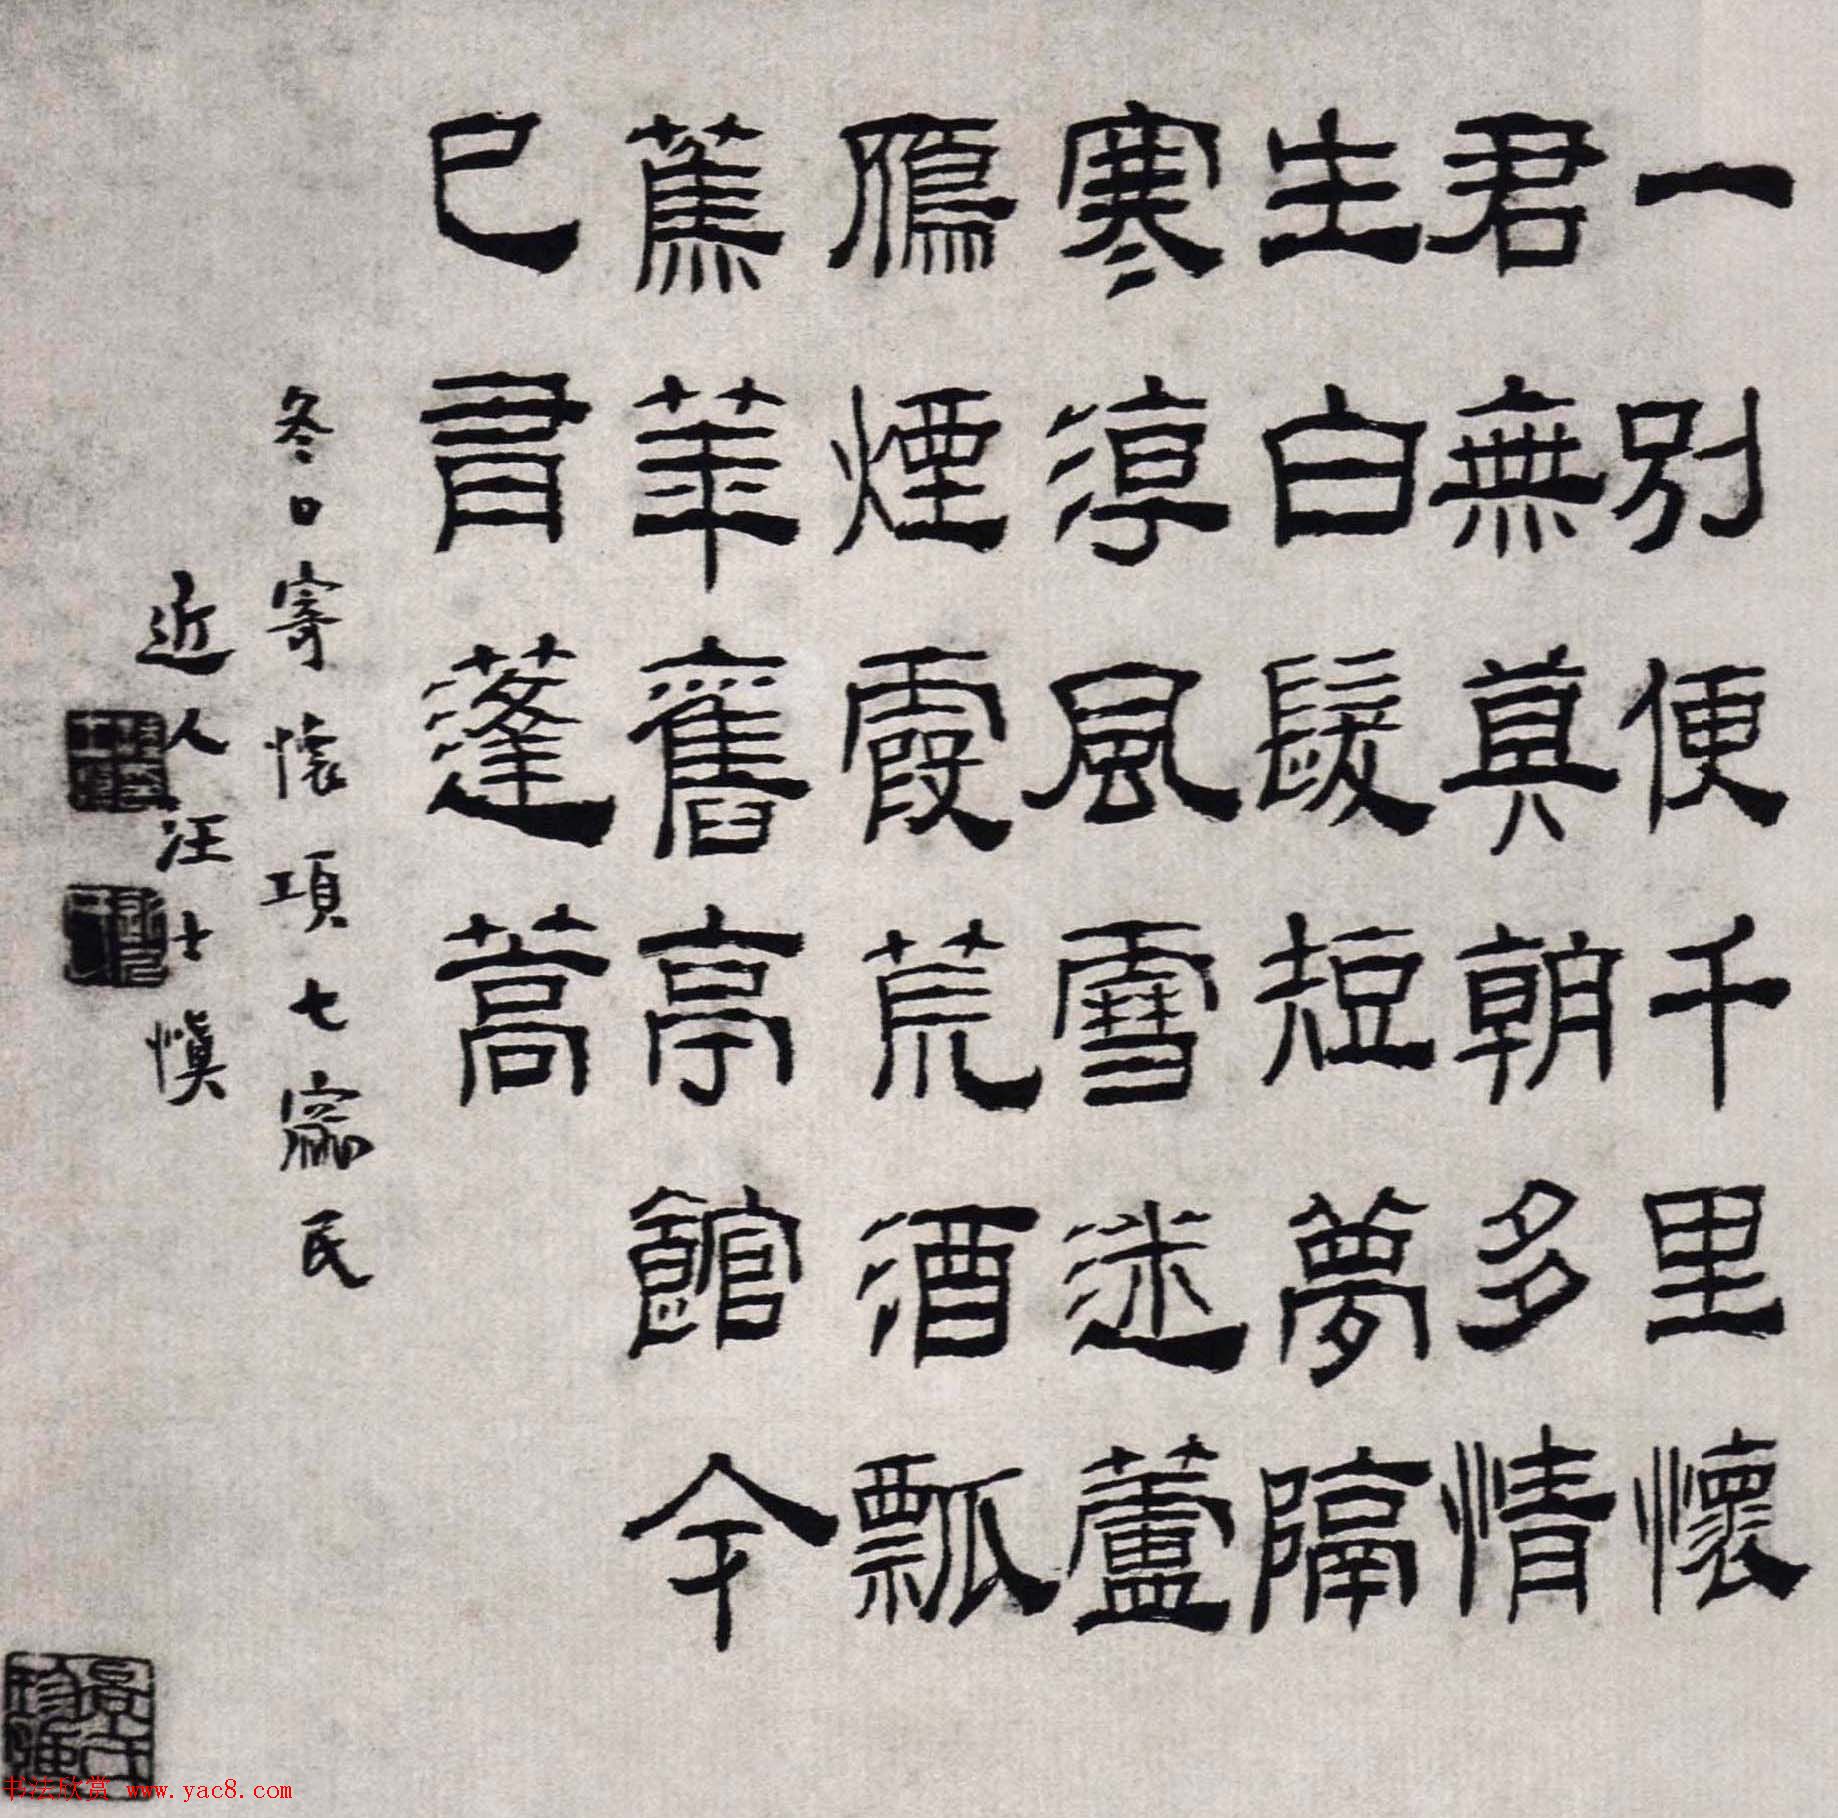 一別便千里懷
君無莫朝多情
生白髮短夢隔
寒淳風雪迷蘆
鴈煙霞荒酒瓢
蕉華舊亭館今
已胥蓬蒿
冬日寄懷項七民
近人汪士慎
书法欣赏 www.yac8.com